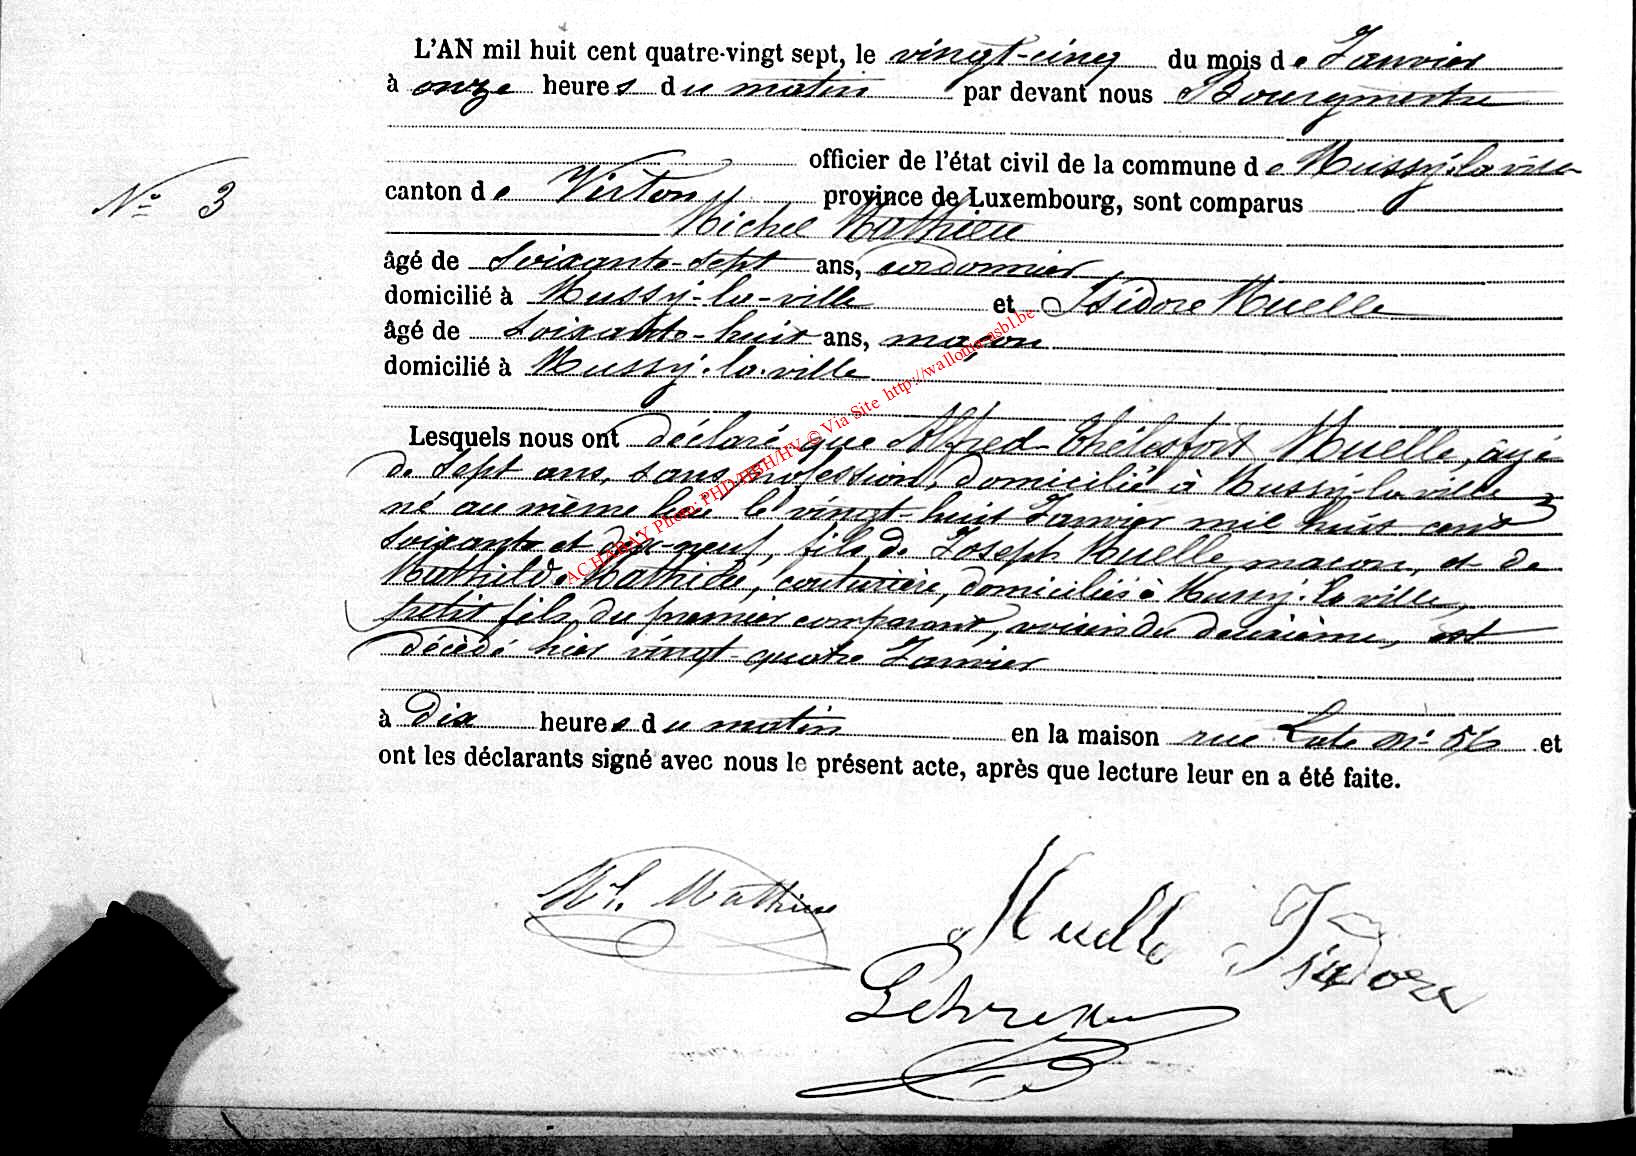 L'AN mil huit cent quatre-vingt sept, le vingt-cinq du mois de Janvier
à onze heures du matin par devant nous Bourgmestre
officier de l'état civil de la commune de Mussy-la-ville
N° 3
canton de Virton, province de Luxembourg, sont comparus
Michel Mathieu
âgé de soixante-sept ans, cordonnier
domicilié à Mussy-la-ville et Isidore Muelle
âgé de soixante-huit ans, maçon
domicilié à Mussy-la-ville
Lesquels nous ont déclaré que Alfred Muelle, âgé
de sept ans, sans profession, domicilié à Mussy-la-ville
né au même lieu le vingt-huit Janvier mil huit cent
soixante et dix-neuf, fils de Joseph Muelle, maçon, et de
Mathilde Mathieu, couturière, domiciliés à Mussy-la-ville,
petit fils du premier comparant, voisin du deuxième, est
décédé hier vingt-quatre Janvier
à dix heures du matin en la maison rue N° 56 et
ont les déclarants signé avec nous le présent acte, après que lecture leur en a été faite.
Ml. Mathieu
Muelle Isidore
ACHABAY Photo: PHD/HBH/HV © Via Site http://wallonia-asbl.be